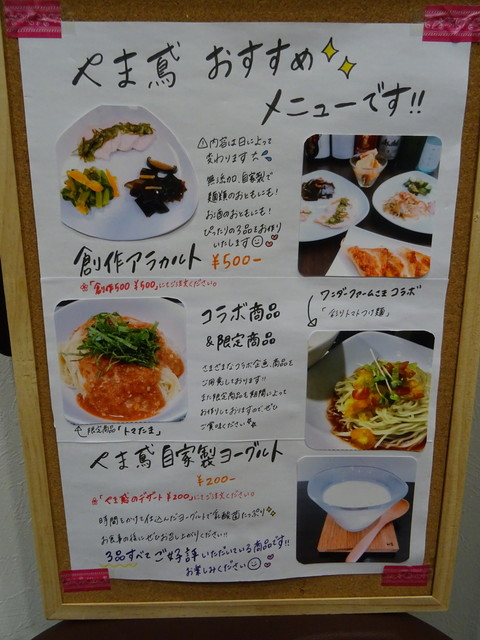 やま鳶 おすすめ
メニューです!!
⚠内容は日によって
変わります
無添加 自家製で
麺類のおともにも!
お酒のおともにも!
ぴったりの3品をお作り
いたします
創作アラカルト ¥500-
※「創作500 ¥500」にてご注文ください。
コラボ商品
&限定商品
さまざまなコラボ企画、商品を
ご用意しております!!
また限定商品も期間によって
お作りしておりますのでぜひ
ご賞味ください
限定商品「トマたま」
ワンダーファームさまコラボ
「彩りトマトつけ麺」
やま鳶 自家製ヨーグルト
¥200-
※「やま鳶のデザート ¥200」にてご注文ください。
時間をかけて仕込んだヨーグルトで乳酸菌たっぷり
お食事の後にぜひお召し上がりください!!
3品すべてご好評いただいている商品です!!
お楽しみください